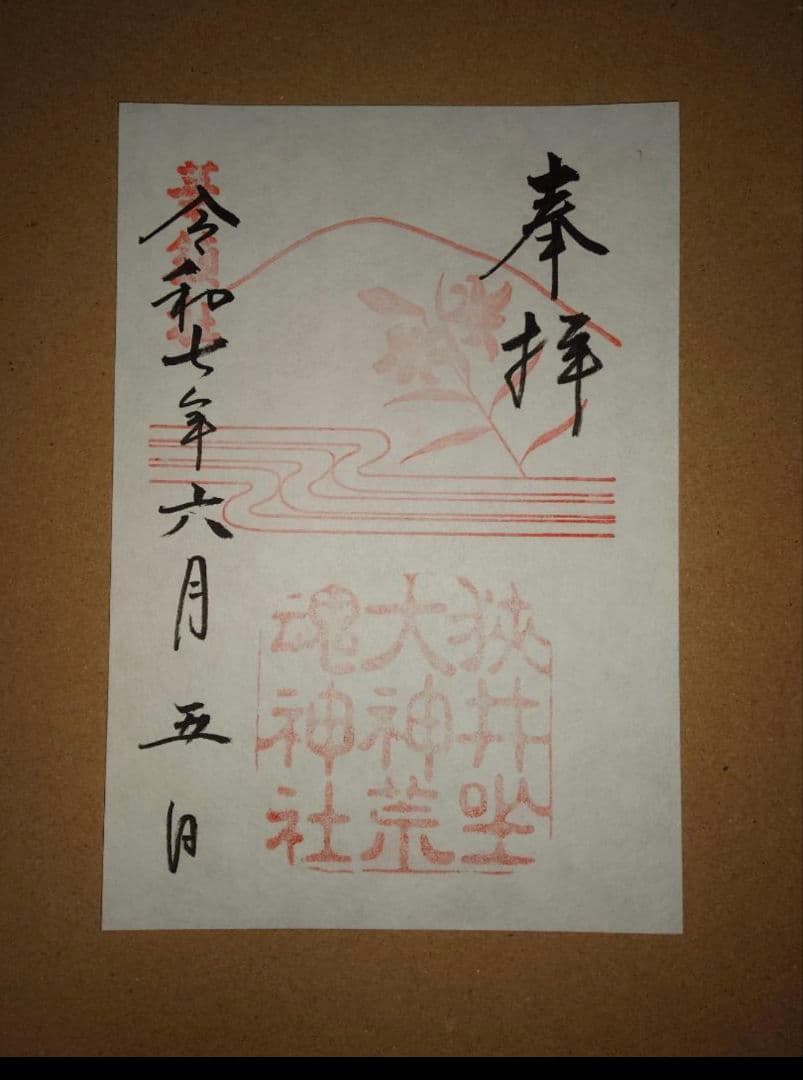 奉拝
狭井坐
大神荒
魂神社
華鎮社
令和七年六月五日